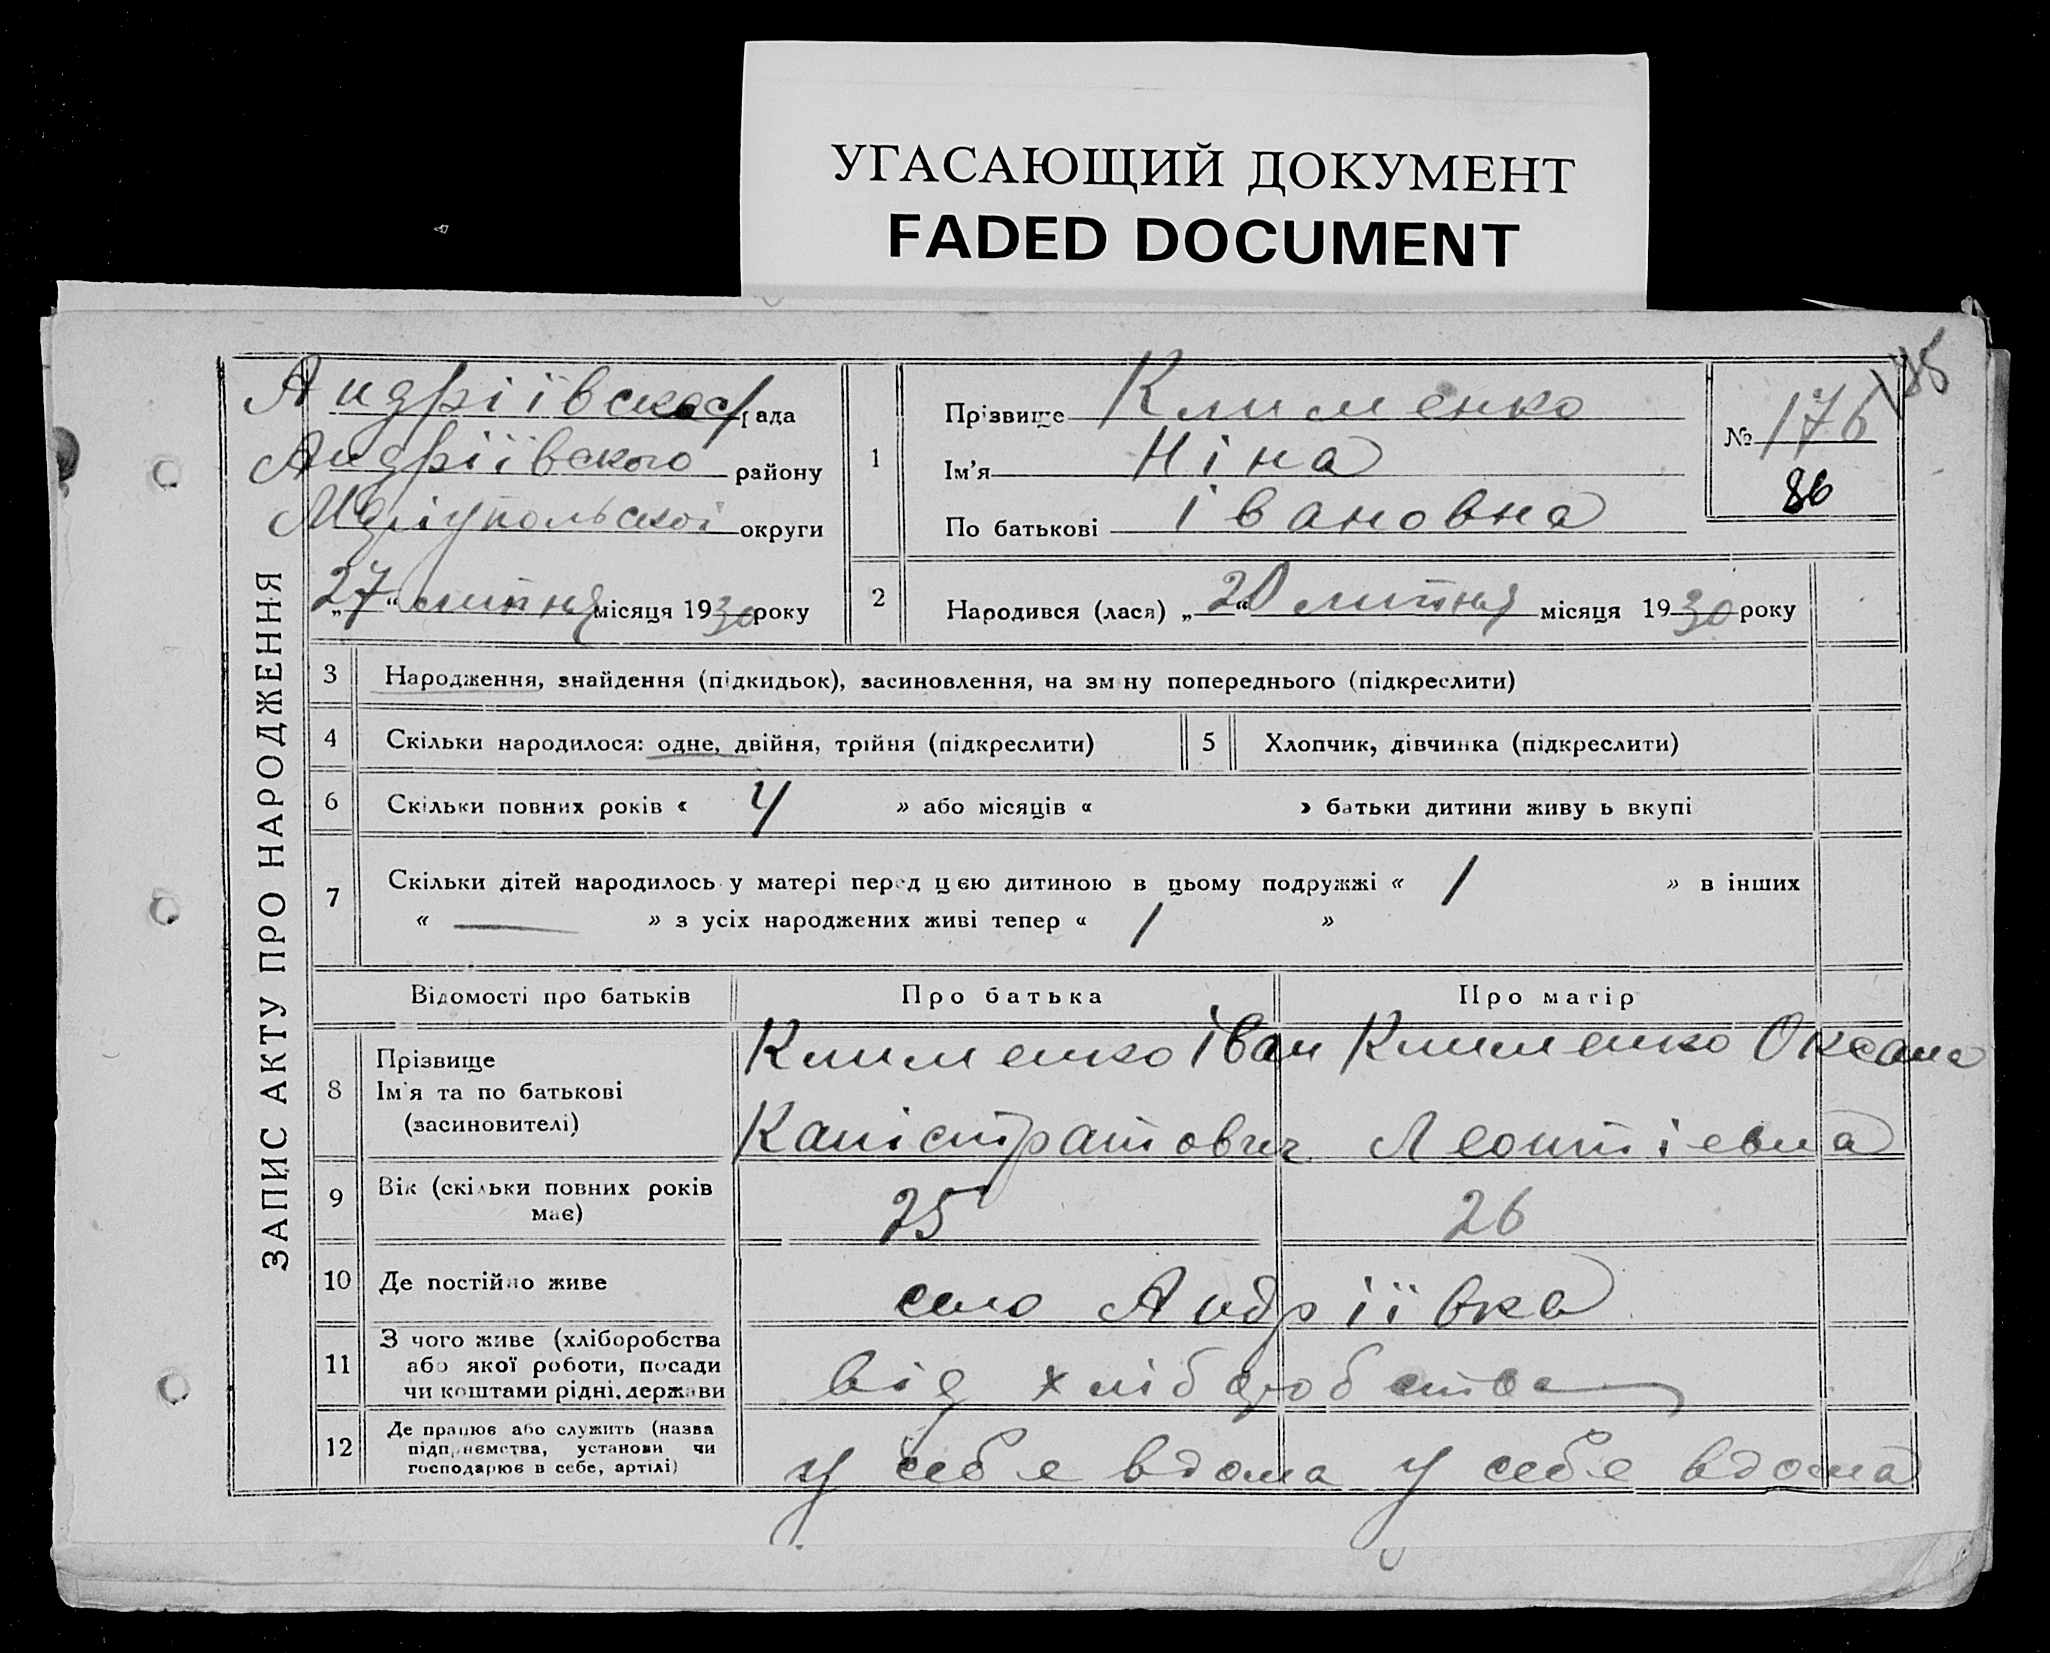 УГАСАЮЩИЙ ДОКУМЕНТ
FADED DOCUMENT
ЗАПИС АКТУ ПРО НАРОДЖЕННЯ
Андріївська с/рада
Андріївського району
Маріупольської округи
„27“ липня місяця 1930 року
1
Прізвище Клименко
Ім’я Ніна
По батькові Івановна
№ 176
86
2 Народився (лася) „20“ липня місяця 1930 року
3 Народження, знайдення (підкидьок), засиновлення, на зміну попереднього (підкреслити)
4 Скільки народилося: одне, двійня, трійня (підкреслити) 5 Хлопчик, дівчинка (підкреслити)
6 Скільки повних років « 4 » або місяців « » батьки дитини живуть вкупі
7 Скільки дітей народилось у матері перед цією дитиною в цьому подружжі « 1 » в інших
« — » з усіх народжених живі тепер « 1 »
Відомості про батьків Про батька Про матір
8 Прізвище
Ім’я та по батькові
(засиновителі)
Клименко Іван Клименко Оксана
Капістратович Леонтіевна
9 Вік (скільки повних років
має)
25 26
10 Де постійно живе село Андріївка
11 З чого живе (хліборобства
або якої роботи, посади
чи коштами рідні, держави
від хліборобства
12 Де працює або служить (назва
підприємства, установи чи
господарює в себе, артілі)
у себе вдома у себе вдома